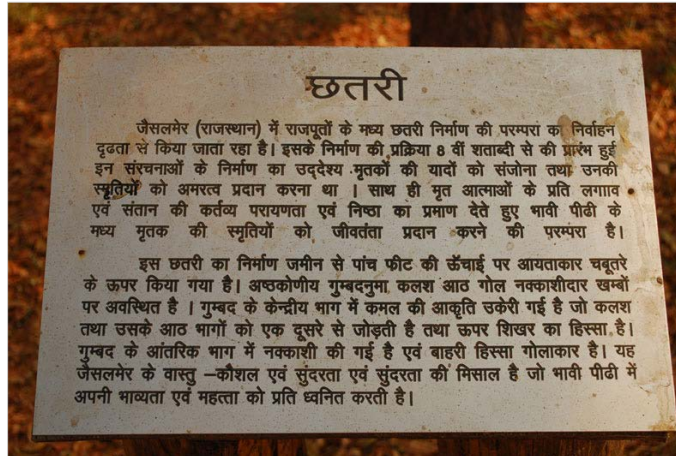 छतरी
जैसलमेर (राजस्थान) में राजपूतों के मध्य छतरी निर्माण की परम्परा का निर्वाहन
दृढता से किया जाता रहा है। इसके निर्माण की प्रक्रिया 8 वीं शताब्दी से की प्रारंभ हुई
इन संरचनाओं के निर्माण का उद्देश्य मृतकों की यादों को संजोना तथा उनकी
स्मृतियों को अमरत्व प्रदान करना था । साथ ही मृत आत्माओं के प्रति लगाव
एवं संतान की कर्तव्य परायणता एवं निष्ठा का प्रमाण देते हुए भावी पीढी के
मध्य मृतक की स्मृतियों को जीवतंता प्रदान करने की परम्परा है।
इस छतरी का निर्माण जमीन से पांच फीट की ऊँचाई पर आयताकार चबूतरे
के ऊपर किया गया है। अष्ठकोणीय गुम्बदनुमा कलश आठ गोल नक्काशीदार खम्बों
पर अवस्थित है । गुम्बद के केन्द्रीय भाग में कमल की आकृति उकेरी गई है जो कलश
तथा उसके आठ भागों को एक दूसरे से जोड़ती है तथा ऊपर शिखर का हिस्सा है।
गुम्बद के आंतरिक भाग में नक्काशी की गई है एवं बाहरी हिस्सा गोलाकार है। यह
जैसलमेर के वास्तु –कौशल एवं सुंदरता एवं सुंदरता की मिसाल है जो भावी पीढी में
अपनी भाव्यता एवं महत्ता को प्रति ध्वनित करती है।